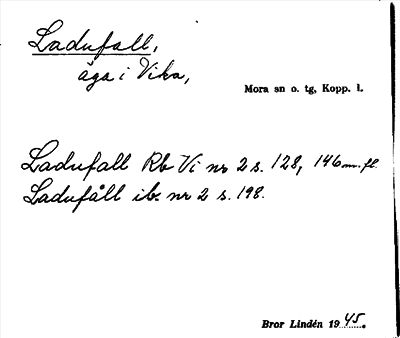 Ladufall,
äga i Vika,
Mora sn o. tg, Kopp. l.
Ladufall Rb Vi nr 2 s. 128, 146 m. fl.
Ladufåll ib. nr 2 s. 198.
Bror Lindén 1945.